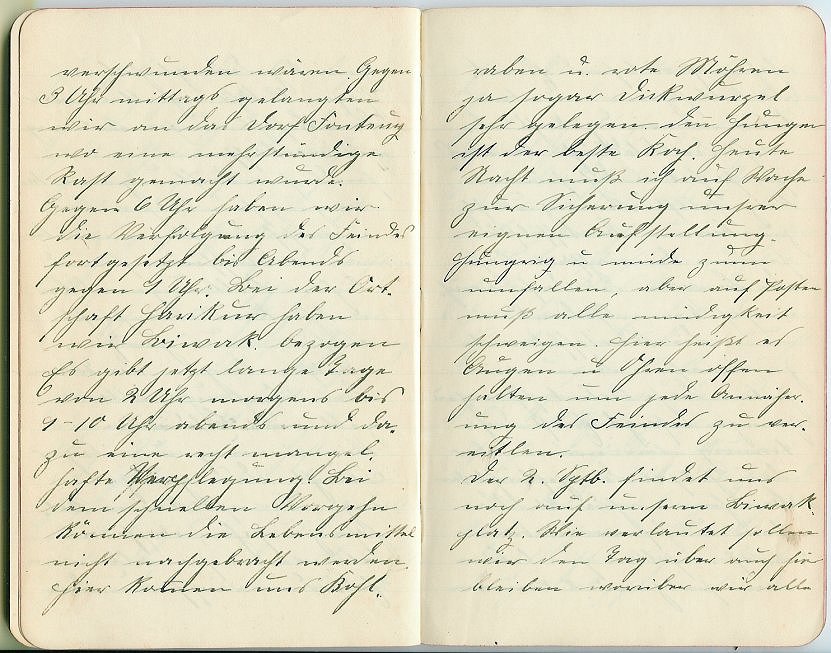 verschwunden wären. Gegen
3 Uhr mittags gelangten
wir an das Dorf
wo eine mehrstündige
Rast gemacht wurde.
Gegen 6 Uhr haben wir
die Verfolgung des Feindes
fortgesetzt bis Abends
gegen Uhr. Bei der Ort-
schaft haben
wir Biwak bezogen
Es gibt jetzt lange Tage
von 2 Uhr morgens bis
9-10 Uhr abends und da-
zu eine recht mangel-
hafte Verpflegung Bei
dem schnellen Vorgehn
können die Lebensmittel
nicht nachgebracht werden.
Hier kommen uns Kohl-
raben u. rote Möhren
ja sogar Dickwurzel
sehr gelegen. den Hunger
ist der beste Koch. Heute
Nacht muß ich auf Wache
zur Sicherung unsrer
eignen Aufstellung.
Hungrig u müde zum
umfallen, aber auf Posten
muß alle müdigkeit
schweigen. Hier heißt es
Augen u Ohren offen
halten um jede Annäher-
ung des Feindes zu ver-
eitlen.
Der 2. Sptb. findet uns
noch auf unserm Biwak-
platz. Wie verlautet sollen
wir den Tag über auch hier
bleiben worüber wir alle